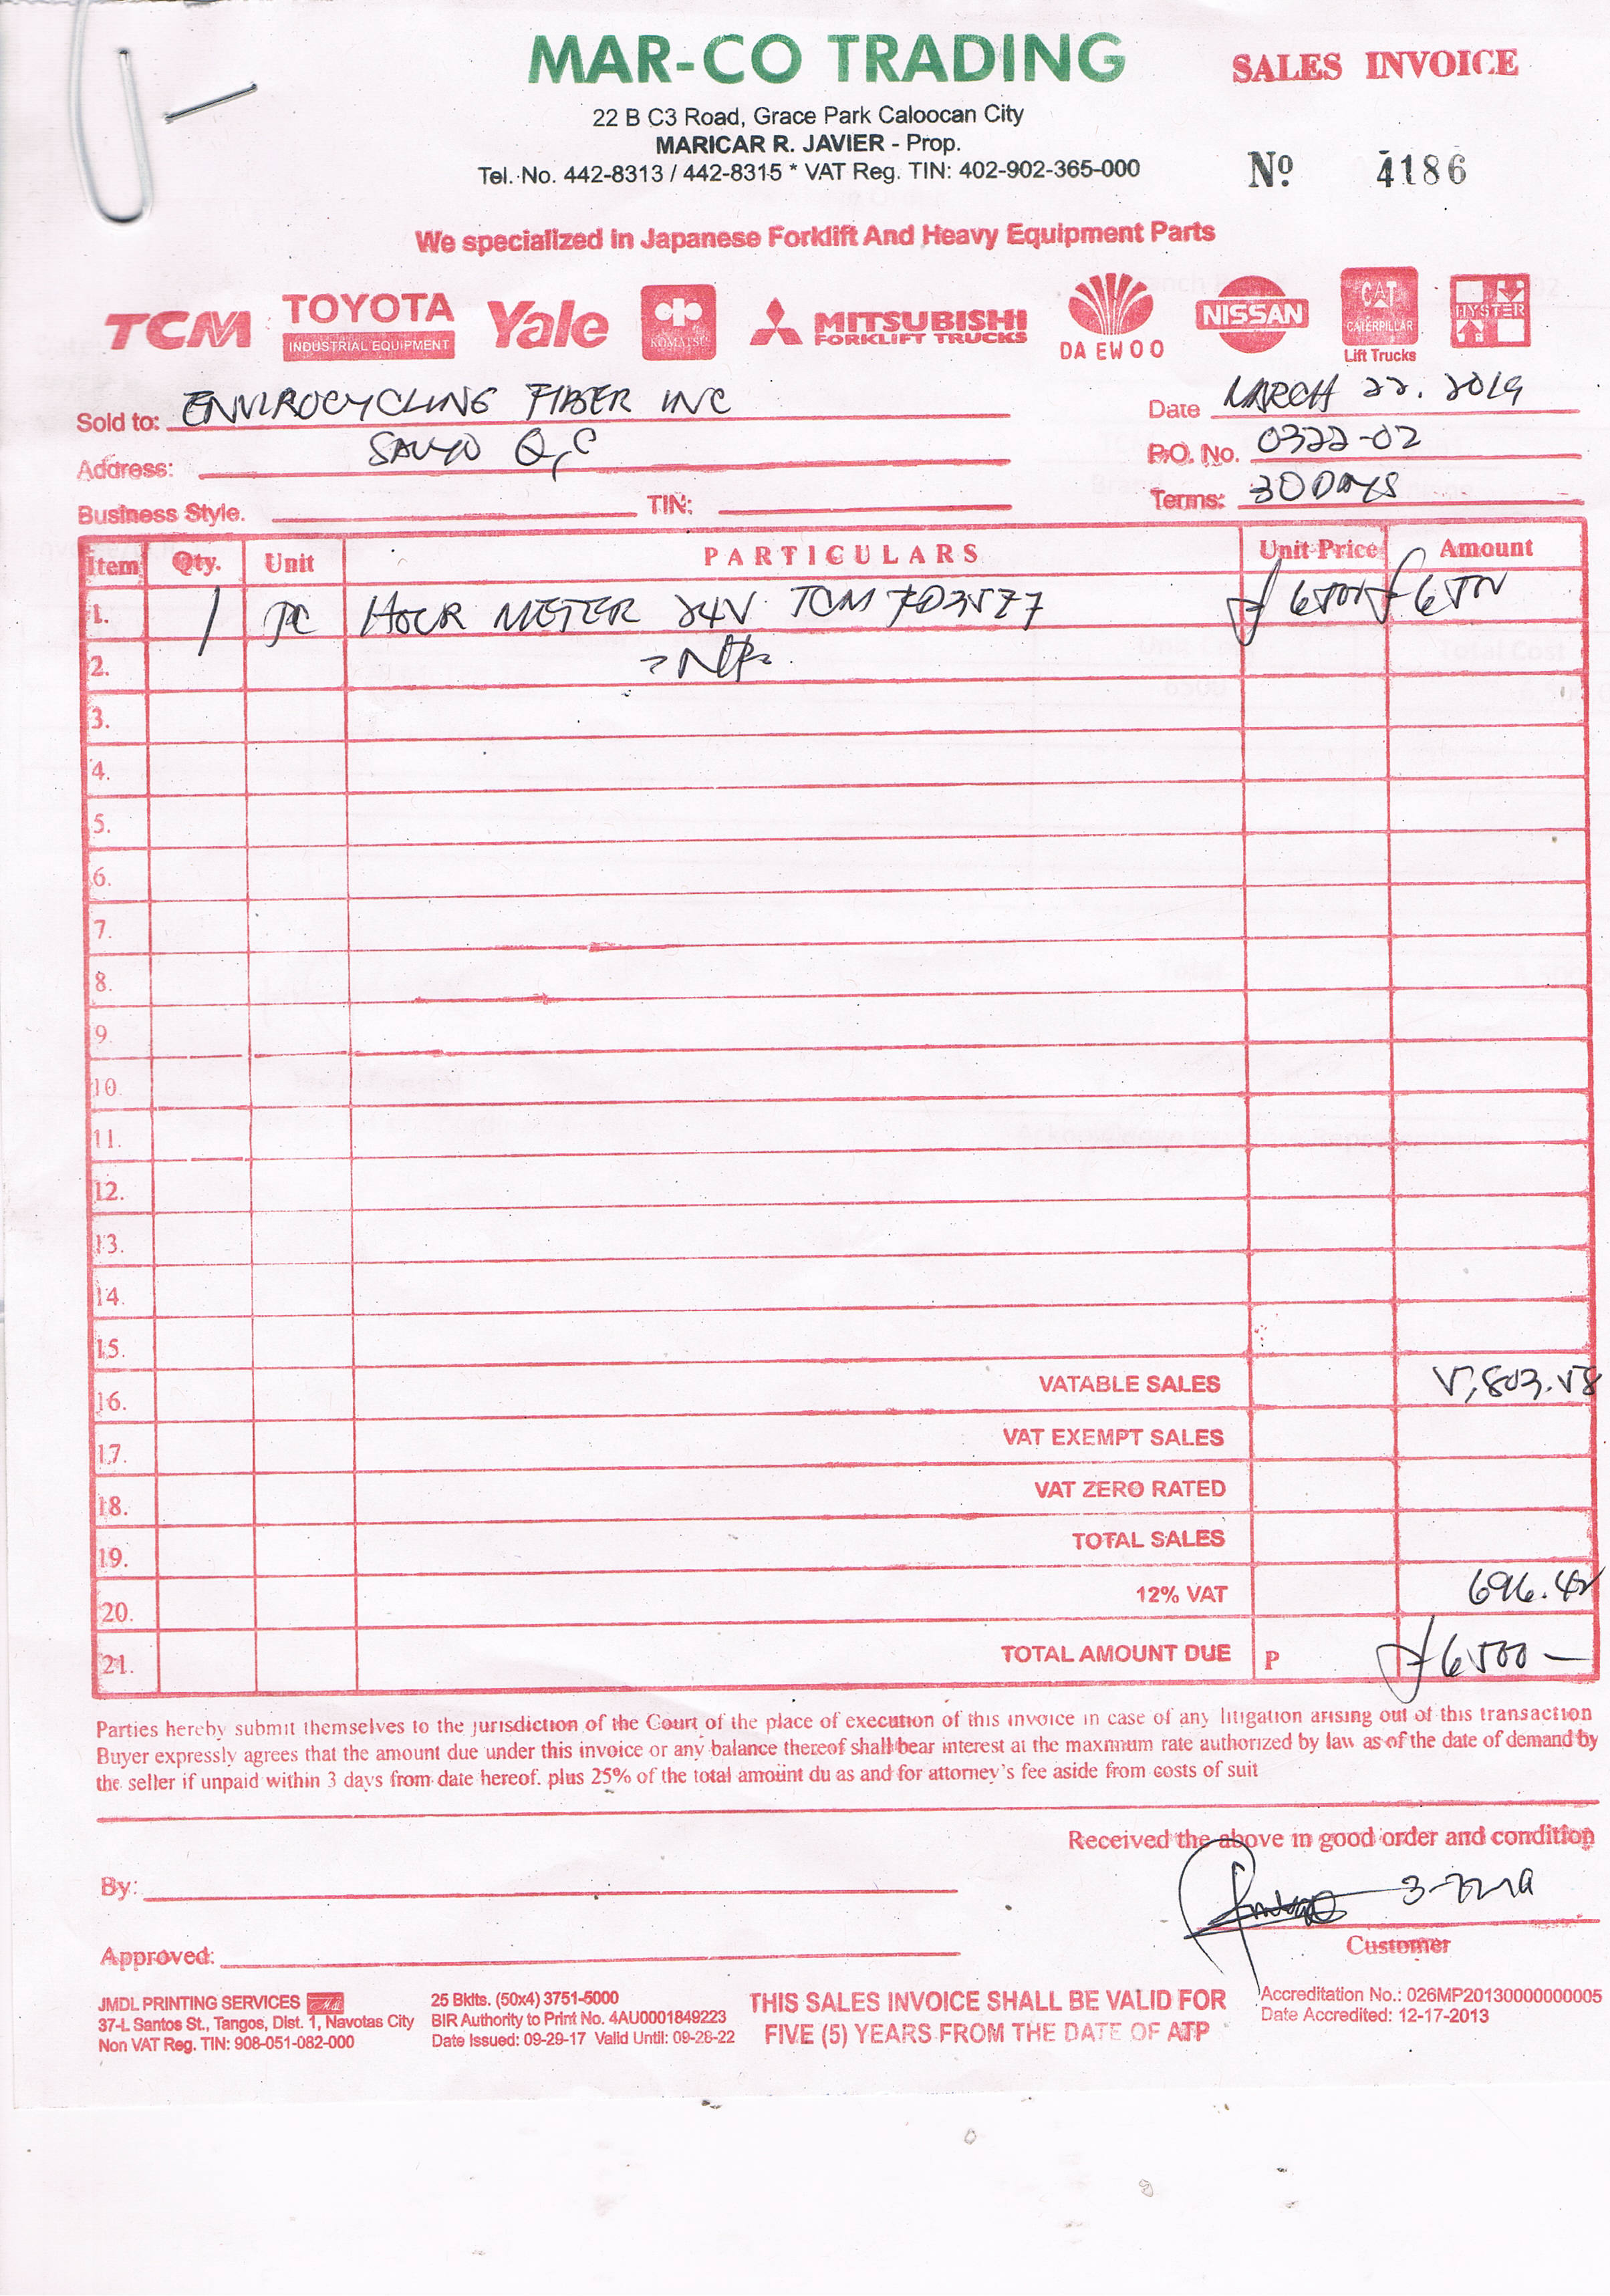 MAR-CO TRADING
SALES INVOICE
22 B C3 Road, Grace Park Caloocan City
MARICAR R. JAVIER - Prop.
Tel. No. 442-8313 / 442-8315 * VAT Reg. TIN: 402-902-365-000
Nº 4186
We specialized in Japanese Forklift And Heavy Equipment Parts
TCM TOYOTA INDUSTRIAL EQUIPMENT Yale KOMATSU MITSUBISHI FORKLIFT TRUCKS DAEWOO NISSAN CAT CATERPILLAR Lift Trucks HYSTER
Sold to: ENVIROCYCLING FIBER INC Date MARCH 22, 2019
Address: SAUYO Q,C P.O. No. 0322-02
Business Style. TIN: Terms: 30 DAYS
Item Qty. Unit PARTICULARS Unit Price Amount
1. 1 PC HOUR METER 24V TCM ₱6500 ₱6500
2.
3.
4.
5.
6.
7.
8.
9.
10.
11.
12.
13.
14.
15.
16. VATABLE SALES 5,803.58
17. VAT EXEMPT SALES
18. VAT ZERO RATED
19. TOTAL SALES
20. 12% VAT 696.42
21. TOTAL AMOUNT DUE P ₱6500 —
Parties hereby submit themselves to the jurisdiction of the Court of the place of execution of this invoice in case of any litigation arising out of this transaction
Buyer expressly agrees that the amount due under this invoice or any balance thereof shall bear interest at the maxmum rate authorized by law as of the date of demand by
the seller if unpaid within 3 days from date hereof. plus 25% of the total amount du as and for attorney's fee aside from costs of suit
Received the above in good order and condition
By:
Customer
Approved:
JMDL PRINTING SERVICES
37-L Santos St., Tangos, Dist. 1, Navotas City
Non VAT Reg. TIN: 908-051-082-000
25 Bklts. (50x4) 3751-5000
BIR Authority to Print No. 4AU0001849223
Date Issued: 09-29-17 Valid Until: 09-28-22
THIS SALES INVOICE SHALL BE VALID FOR
FIVE (5) YEARS FROM THE DATE OF ATP
Accreditation No.: 026MP20130000000005
Date Accredited: 12-17-2013